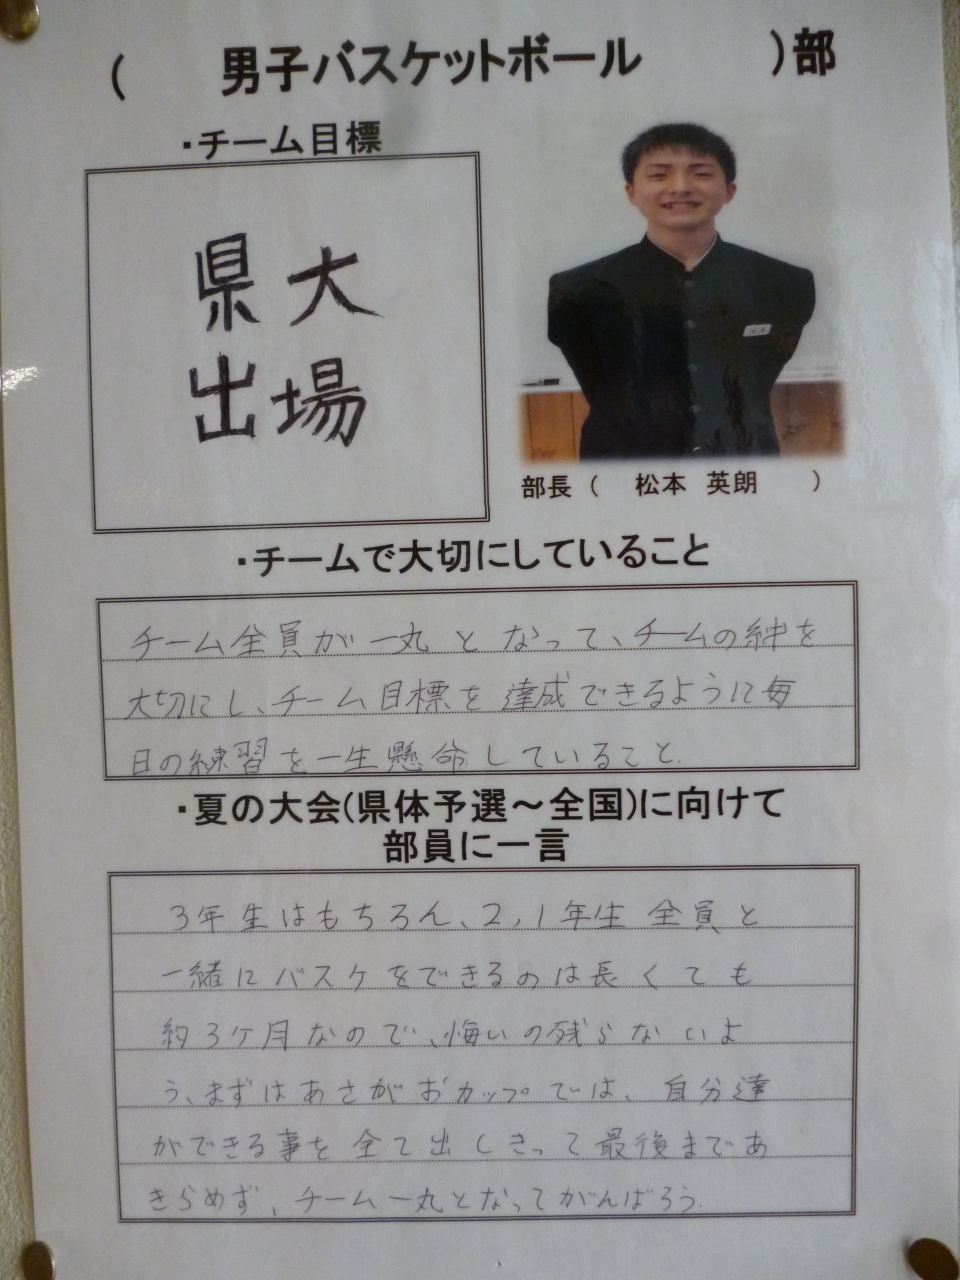 ( 男子バスケットボール )部
・チーム目標
県大
出場
部長 ( 松本 英朗 )
・チームで大切にしていること
チーム全員が一丸となって、チームの絆を
大切にし、チーム目標を達成できるように毎
日の練習を一生懸命していること.
・夏の大会(県体予選～全国)に向けて
部員に一言
3年生はもちろん、2,1年生全員と
一緒にバスケをできるのは長くても
約3ケ月なので、悔いの残らないよ
う、まずはあさがおカップでは、自分達
ができる事を全て出しきって最後まであ
きらめず、チーム一丸となってがんばろう.